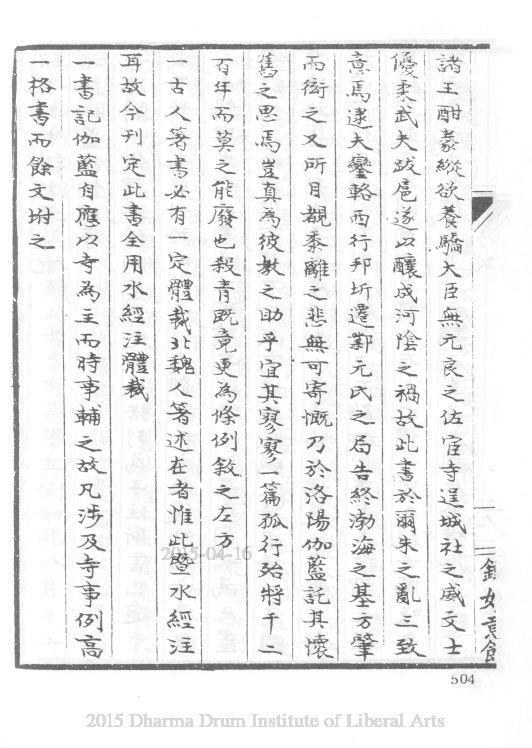 諸王酣豪縱欲養驕大臣無元良之佐宦寺逞城社之威文士
優柔武夫跋扈遂以釀成河陰之禍故此書於爾朱之亂三致
意焉逮夫鑾輅西行邦圻遷鄴元氏之局告終渤海之基方肇
而衒之又所目覩黍離之悲無可寄慨乃於洛陽伽藍託其懷
舊之思焉豈真為彼教之助乎宜其寥寥一篇孤行殆將千二
百年而莫之能廢也殺青既竟更為條例敘之左方
一古人著書必有一定體裁北魏人著述在者惟此暨水經注
耳故今刊定此書全用水經注體裁
一書記伽藍自應以寺為主而時事輔之故凡涉及寺事例高
一格書而餘文坿之
504
2015-04-16
2015 Dharma Drum Institute of Liberal Arts